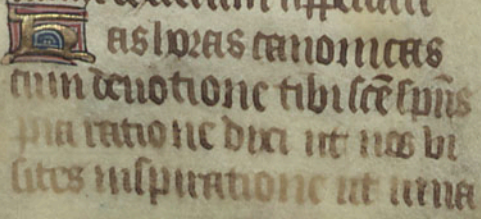 Has horas canonicas
cum deuotione tibi scē spūs
pia ratione dixi ut nos vi
sites inspiratione ut uiua